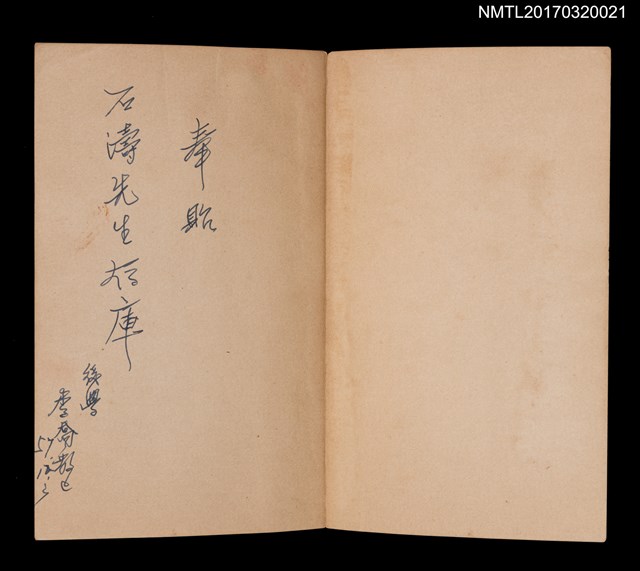 NMTL20170320021
奉貽
石濤先生存庫
後學
李喬敬上
57.